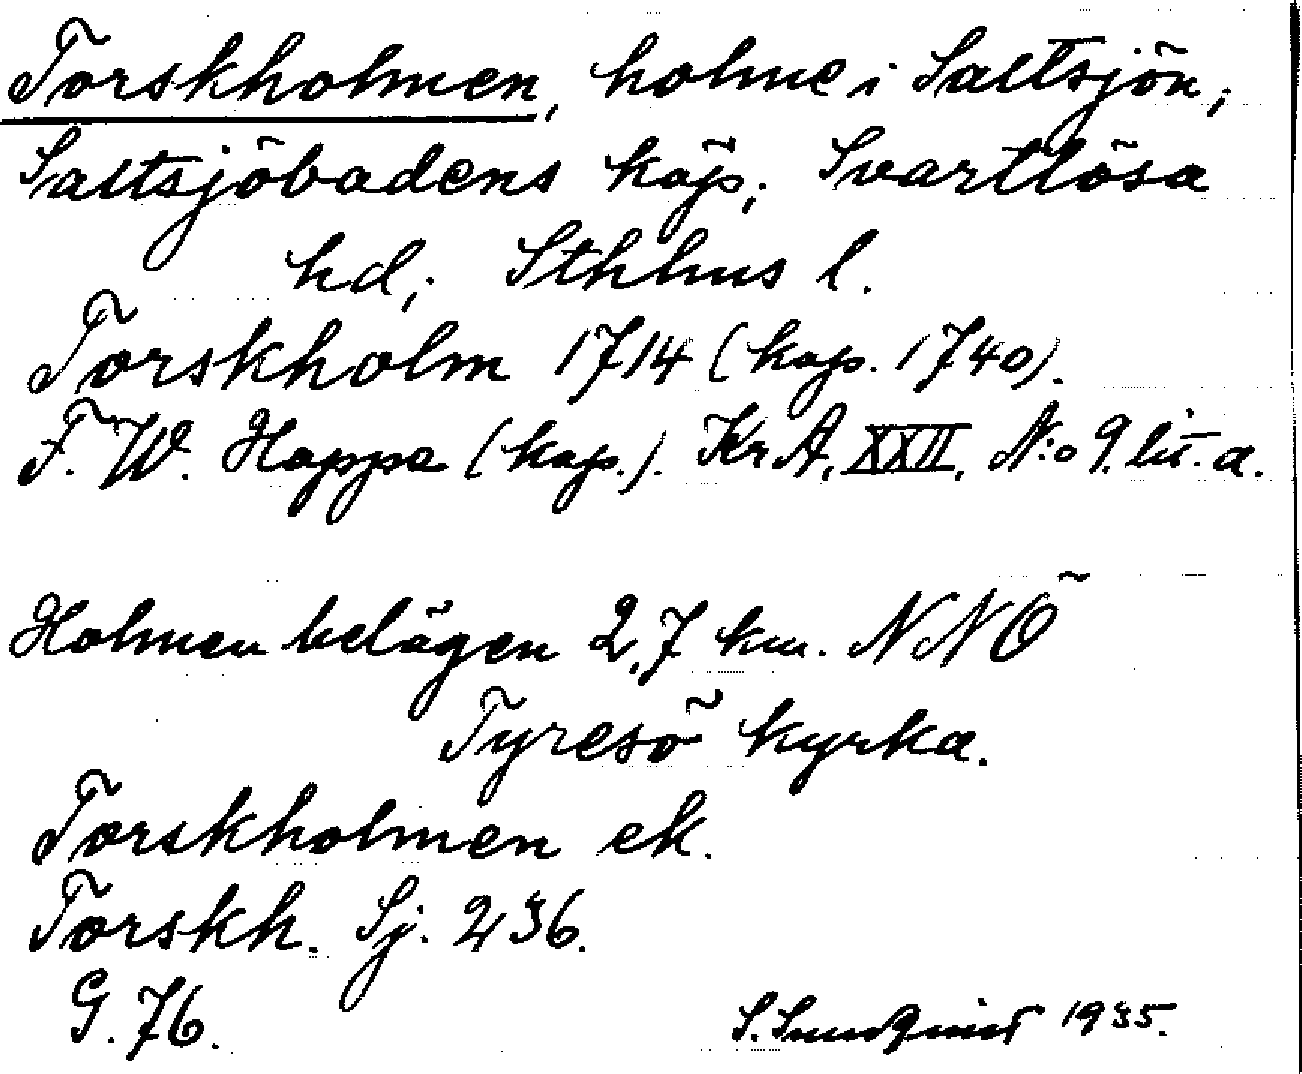 Torskholmen, holme i Saltsjön,
Saltsjöbadens köp, Svartlösa
hd, Sthlms l.
Torskholm 1714 (kop. 1740).
F. W. Hoppe (kop.). KrA, XXII, N:o 9. lit. a.
Holmen belägen 2,7 km. NNÖ
Tyresö kyrka.
Torskholmen ek.
Torskh. Sj. 236.
G. 76.
S. Sundquist 1935.